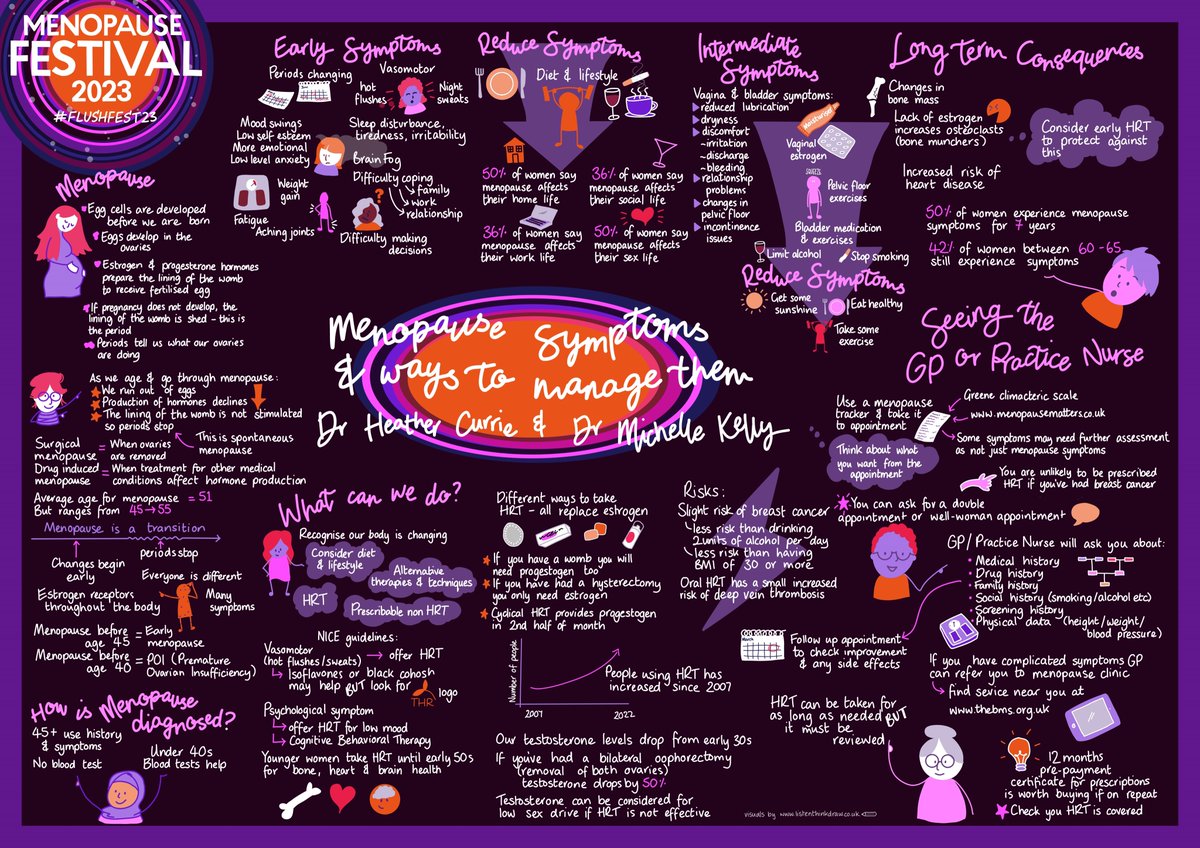 MENOPAUSE
FESTIVAL
2023
#FLUSHFEST23
Menopause Symptoms
& ways to manage them
Dr Heather Currie & Dr Michelle Kelly
Menopause
Egg cells are developed
before we are born
Eggs develop in the
ovaries
Estrogen & progesterone hormones
prepare the lining of the womb
to receive fertilised egg
If pregnancy does not develop, the
lining of the womb is shed - this is
the period
Periods tell us what our ovaries
are doing
As we age & go through menopause:
We run out of eggs
Production of hormones declines
The lining of the womb is not stimulated
so periods stop
This is spontaneous
menopause
Surgical menopause = When ovaries
are removed
Drug induced menopause = When treatment for other medical
conditions affect hormone production
Average age for menopause = 51
But ranges from 45→55
Menopause is a transition
Changes begin
early
periods stop
Everyone is different
Estrogen receptors
throughout the body
Many
symptoms
Menopause before
age 45 = Early
menopause
Menopause before
age 40 = POI (Premature
Ovarian Insufficiency)
How is Menopause
diagnosed?
45+ use history
& symptoms
No blood test
Under 40s
Blood tests help
Early Symptoms
Periods changing
Vasomotor
hot
flushes
Night
sweats
Mood swings
Low self esteem
More emotional
Low level anxiety
Sleep disturbance,
tiredness, irritability
Brain Fog
Weight
gain
Difficulty coping
family
work
relationship
Fatigue
Aching joints
?
Difficulty making
decisions
Reduce Symptoms
Diet & lifestyle
50% of women say
menopause affects
their home life
36% of women say
menopause affects
their social life
36% of women say
menopause affects
their work life
50% of women say
menopause affects
their sex life
Intermediate
Symptoms
Vagina & bladder symptoms:
reduced lubrication
dryness
discomfort
-irritation
-discharge
-bleeding
relationship
problems
changes in
pelvic floor
incontinence
issues
Moisturiser
Vaginal
estrogen
SQUEEZE
Pelvic floor
exercises
Bladder medication
& exercises
Limit alcohol
Stop smoking
Reduce Symptoms
Get some
sunshine
Eat healthy
Take some
exercise
Long term Consequences
Changes in
bone mass
Lack of estrogen
increases osteoclasts
(bone munchers)
Consider early HRT
to protect against
this
Increased risk of
heart disease
50% of women experience menopause
symptoms for 7 years
42% of women between 60-65
still experience symptoms
Seeing the
GP or Practice Nurse
Use a menopause
tracker & take it
to appointment
Greene climacteric scale
www.menopausematters.co.uk
Some symptoms may need further assessment
as not just menopause symptoms
Think about what
you want from the
appointment
You are unlikely to be prescribed
HRT if you've had breast cancer
You can ask for a double
appointment or well-woman appointment
GP/Practice Nurse will ask you about:
Medical history
Drug history
Family history
Social history (smoking/alcohol etc)
Screening history
Physical data (height/weight/
blood pressure)
March
Follow up appointment
to check improvement
& any side effects
If you have complicated symptoms GP
can refer you to menopause clinic
find sevice near you at
www.thebms.org.uk
HRT can be taken for
as long as needed BUT
it must be
reviewed
12 months
pre-payment
certificate for prescriptions
is worth buying if on repeat
Check you HRT is covered
What can we do?
Recognise our body is changing
Consider diet
& lifestyle
Alternative
therapies & techniques
HRT
Prescribable non HRT
NICE guidelines:
Vasomotor
(hot flushes/sweats) → offer HRT
Isoflavones or black cohosh
may help BUT look for THR logo
Psychological symptom
offer HRT for low mood
Cognitive Behavioral Therapy
Younger women take HRT until early 50s
for bone, heart & brain health
Different ways to take
HRT - all replace estrogen
If you have a womb you will
need progestogen too
If you have had a hysterectomy
you only need estrogen
Cyclical HRT provides progestogen
in 2nd half of month
Number of people
2007
2022
People using HRT has
increased since 2007
Our testosterone levels drop from early 30s
If you've had a bilateral oophorectomy
(removal of both ovaries)
testosterone drops by 50%
Testosterone can be considered for
low sex drive if HRT is not effective
Risks:
Slight risk of breast cancer
less risk than drinking
2units of alcohol per day
less risk than having
BMI of 30 or more
Oral HRT has a small increased
risk of deep vein thrombosis
visuals by www.listenthinkdraw.co.uk